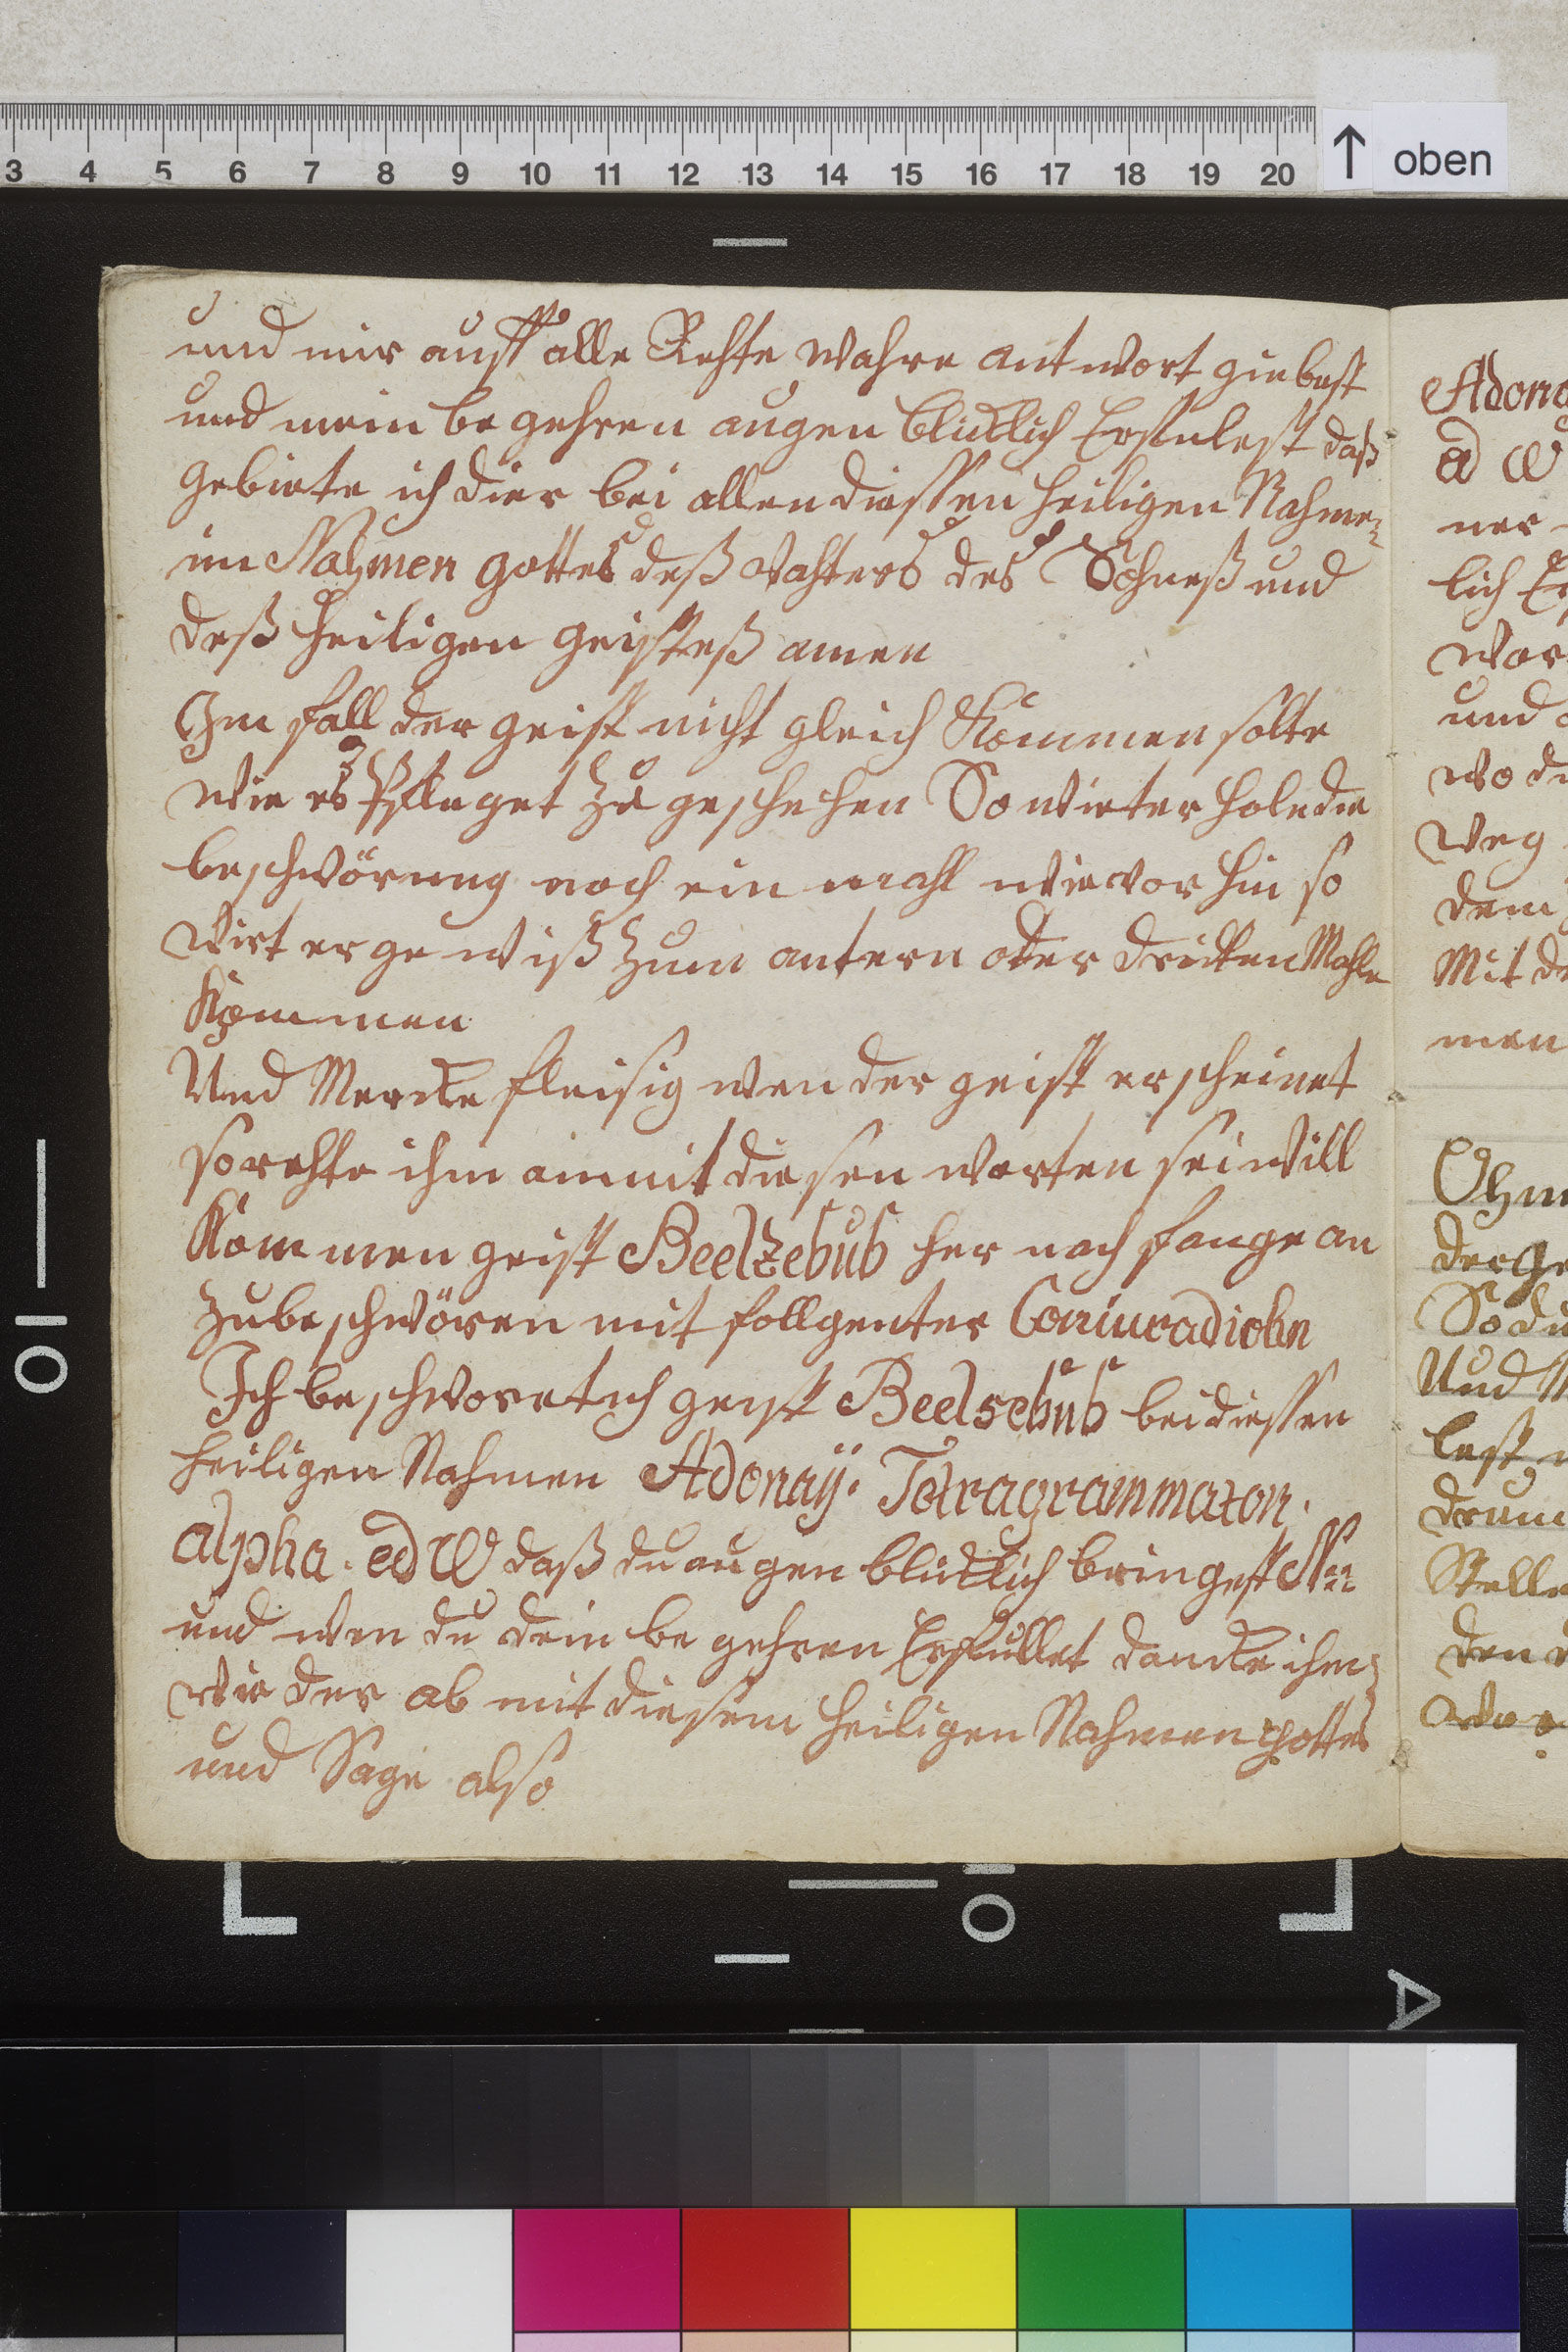 3 4 5 6 7 8 9 10 11 12 13 14 15 16 17 18 19 20 ↑ oben
und mir auff alle Rehte wahre antwort giebest
und mein be gehren augen blicklich Erfulest daß
gebiete ich dier bei allen diessen heiligen Nahme=
im Nahmen gottes deß vahters des Sohneß und
deß heiligen geisteß amen
Im fall der geist nicht gleich Kommen solte
wie es Pfleget zu geschehen So wieter hole die
beschwörung noch ein mahl wie vor hin so
wirt er ge wiß zum antern oder dritten Mahle
Kommen
Und Mercke fleisig wen der geist erscheinet
so rehte ihm an mit die sen worten sei will
Kom men geist Beelzebub her nach fange an
zu be schwören mit follgenter Coniuradiohn
Ich be schwore tich geist Beelsebub bei diessen
heiligen Nahmen Adonaÿ. Tetragrammaton.
alpha. ed W daß du augen blicklich bringest N::
und wen du dein be gehren Erfullet dancke ihm
wie der ab mit diesem heiligen Nahmen gottes
und Sage also
Adona
ad W
ner
lich Er
wor
und
wo du
weg
dem
Mit de
men
Ohn
der ge
So du
Und
lest
drum
Stelle
den